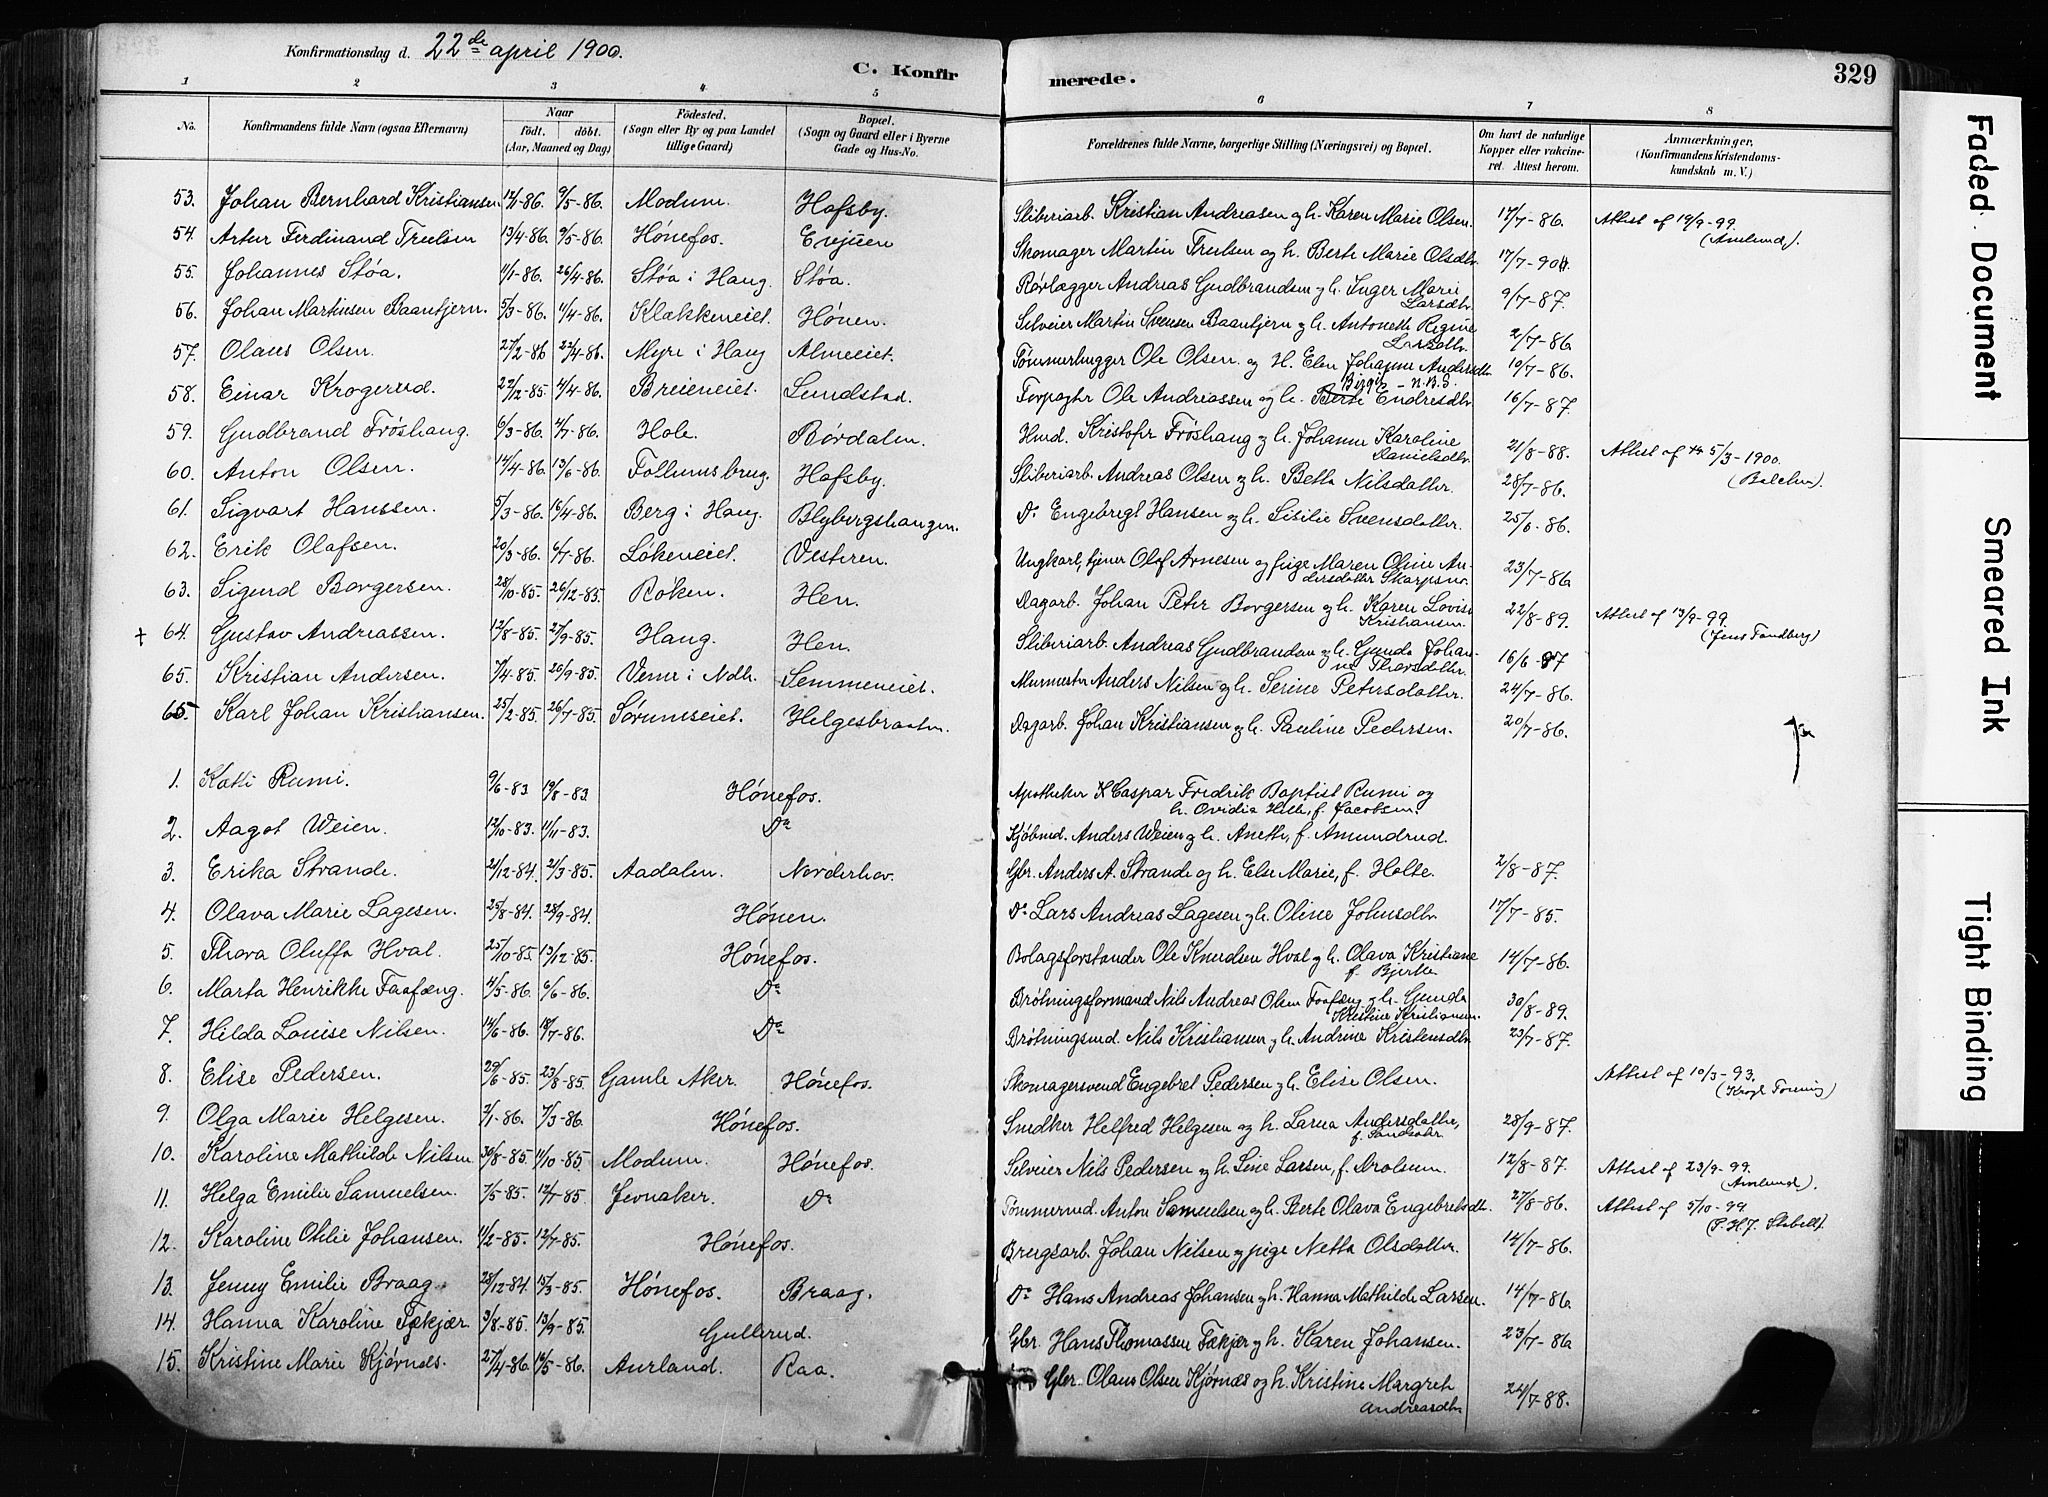 Konfirmationsdag d. 22de april 1900.
C. Konfirmerede.
329
1 2 3 4 5 6 7 8
No.
Konfirmandens fulde Navn (ogsaa Efternavn)
Naar
födt. döbt.
(Aar, Maaned og Dag)
Födested.
(Sogn eller By og paa Landet
tillige Gaard)
Bopæl.
(Sogn og Gaard eller i Byerne
Gade og Hus-No.
Forældrenes fulde Navne, borgerlige Stilling (Næringsvei) og Bopæl.
Om havt de naturlige
Kopper eller vakcine-
ret. Attest herom.
Anmærkninger.
(Konfirmandens Kristendoms-
kundskab m. V.)
53. Johan Bernhard Kristiansen 9/5-86. Modum. Hofsby. Sliberiarb. Kristian Andreasen og h. Karen Marie Olsen. 17/7-86. Attest af 19/9-99. (Amlund).
54. Artur Ferdinand Trulsen 13/4-86. 9/5-86. Hønefos. Skomager Martin Trulsen og h. Berte Marie Olsdtr.
55. Johannes Støa. 11/1-86. 26/4-86. Støa i Haug. Støa. Rørlægger Andreas Gudbrandsen og h. Inger Marie Larsdtr. 9/7-87.
56. Johan Martinsen Baantjern. 5/3-86. 11/4-86. Klækkeneiet. Hønen. Selveier Martin Svensen Baantjern og h. Antonette Regine Larsdtr. 2/7-86
57. Olaus Olsen. 27/2-86 22/4-86. Myre i Haug Almeiet. Tømmerhugger Ole Olsen og H. Elen Johanne Andersdtr. 10/7-86.
58. Einar Krogerud. 22/12-85. 2/4-86. Breieneiet. Lundstad. Forpagter Ole Andreassen og h. Berte Endresdtr. Birgit - n.B.S. 16/7-87.
59. Gudbrand Frøshaug. 6/3-86. 4/7-86. Hole. Børdalen. Hmd. Kristofer Frøshaug og h. Johanne Karoline Danielsdtr. 21/8-88. Attest af 5/3-1900.
60. Anton Olsen. 14/4-86. 13/6-86. Follumsbrug. Hofsby. Sliberiarb. Andreas Olsen og h. Betta Nilsdatter. 28/7-86.
61. Sigvart Hanssen. 5/3-86. 16/4-86. Berg i Haug. Blybergshaugen. Do Engebregt Hansen og h. Sisilie Svensdatter. 25/6-86.
62. Erik Olafsen. 20/3-86. 6/7-86. Løkeneiet. Vesteren. Ungkarl, tjener Olaf Arnesen og pige Maren Oline Andersdatter 23/7-86
63. Sigurd Borgersen. 28/10-85. 26/12-85. Røken. Hen. Dagarb. Johan Peter Borgersen og h. Karen Lovise Kristiansen. 22/8-89. Attest af 13/9-99. (Jens Tandberg)
+ 64. Gustav Andreassen. 12/8-85. 27/9-85. Haug. Hen. Sliberiarb. Andreas Gudbrandsen og h. Gunda Johanne Thorsdatter. 16/6-87
65. Kristian Andersen. 7/4-85. 20/9-85. Veme i Ndh. Semmeneiet. Murmester Anders Nilsen og h. Serine Petersdatter. 24/7-86.
65. Karl Johan Kristiansen. 25/2-85. 26/7-85. Sørumseiet. Helgesbraaten. Dagarb. Johan Kristiansen og h. Pauline Pedersen. 20/7-86.
1. Katti Rumi. 9/6-83 19/8-83. Hønefos. Apotheker Caspar Fredrik Baptist Rumi og h. Ovidia f. Jacobsen.
2. Aagot Weien. 12/10-83. 11/11-83. Do Kjøbmd. Anders Weien og h. Anette, f. Amundrud.
3. Erika Strande. 21/12-84. 21/3-85. Aadalen. Norderhov. Gbr. Anders A. Strande og h. Else Marie, f. Holte. 2/8-87.
4. Olava Marie Lagesen. 25/8-84. 28/9-84. Hønen. Do Lars Andreas Lagesen og h. Oline Johnsdtr 17/7-85.
5. Thora Oluffa Hval. 25/10-85. 13/12-85. Hønefos. Bolagsforstander Ole Knudsen Hval og h. Olava Kristiane f. Bjerke 14/7-86.
6. Marta Henrikke Faafæng. 11/5-86. 6/6-86. Do Brøtningsformand Nils Andreas Olsen Faafæng og h. Gunda Kristine Kristiansen. 30/8-89.
7. Hilda Louise Nilsen. 14/6-86. 18/7-86. Do Brøtningsmd. Nils Kristiansen og h. Andrine Kristensdtr 23/7-87.
8. Elise Pedersen. 29/6-85. 23/8-85. Gamle Aker. Hønefos. Skomagersvend Engebret Pedersen og h. Elise Olsen. Attest af 10/3-93.
9. Olga Marie Helgesen. 2/1-86. 7/3-86 Hønefos. Snedker Helfred Helgesen og h. Larna Andersdatter, 28/9-87.
10. Karoline Mathilde Nilsen 30/8-85. 11/10-85. Modum. Hønefos. Selveier Nils Pedersen og h. Line Larsen, f. Drolsum. 12/8-87. Attest af 23/9-99. (Amlund).
11. Helga Emilie Samuelsen. 7/5-85. 12/7-85. Jevnaker. Do Tømmermd. Anton Samuelsen og h. Berte Olava Engebretsdtr. 27/8-86. Attest af 5/10-99.
12. Karoline Otilie Johansen. 11/2-85. 12/7-85. Hønefos. Brugsarb. Johan Nilsen og pige Netta Olsdatter. 14/7-86.
13. Jenny Emilie Braag. 28/12-84. 15/3-85. Hønefos. Braag. Do Hans Andreas Johansen og h. Hanna Mathilde Larsen. 14/7-86.
14. Hanna Karoline Fækjær. 3/8-85. 13/9-85. Gullerud. Gbr. Hans Thomassen Fækjer og h. Karen Johansen. 23/7-86
15. Kristine Marie Kjørnæs. 27/4-86. Aurland. Raa. Gbr. Olaus Olsen Kjørnæs og h. Kristine Margret Andreasdtr 24/7-88.
Faded Document
Smeared Ink
Tight Binding